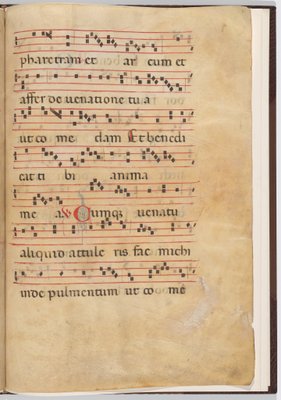 pharetram et ar cum et
affer de uenatione tu a
ut co me dam Et benedi
cat ti bi anima
me a. Cumq; uenatu
aliquid attule ris fac michi
inde pulmentum ut co me